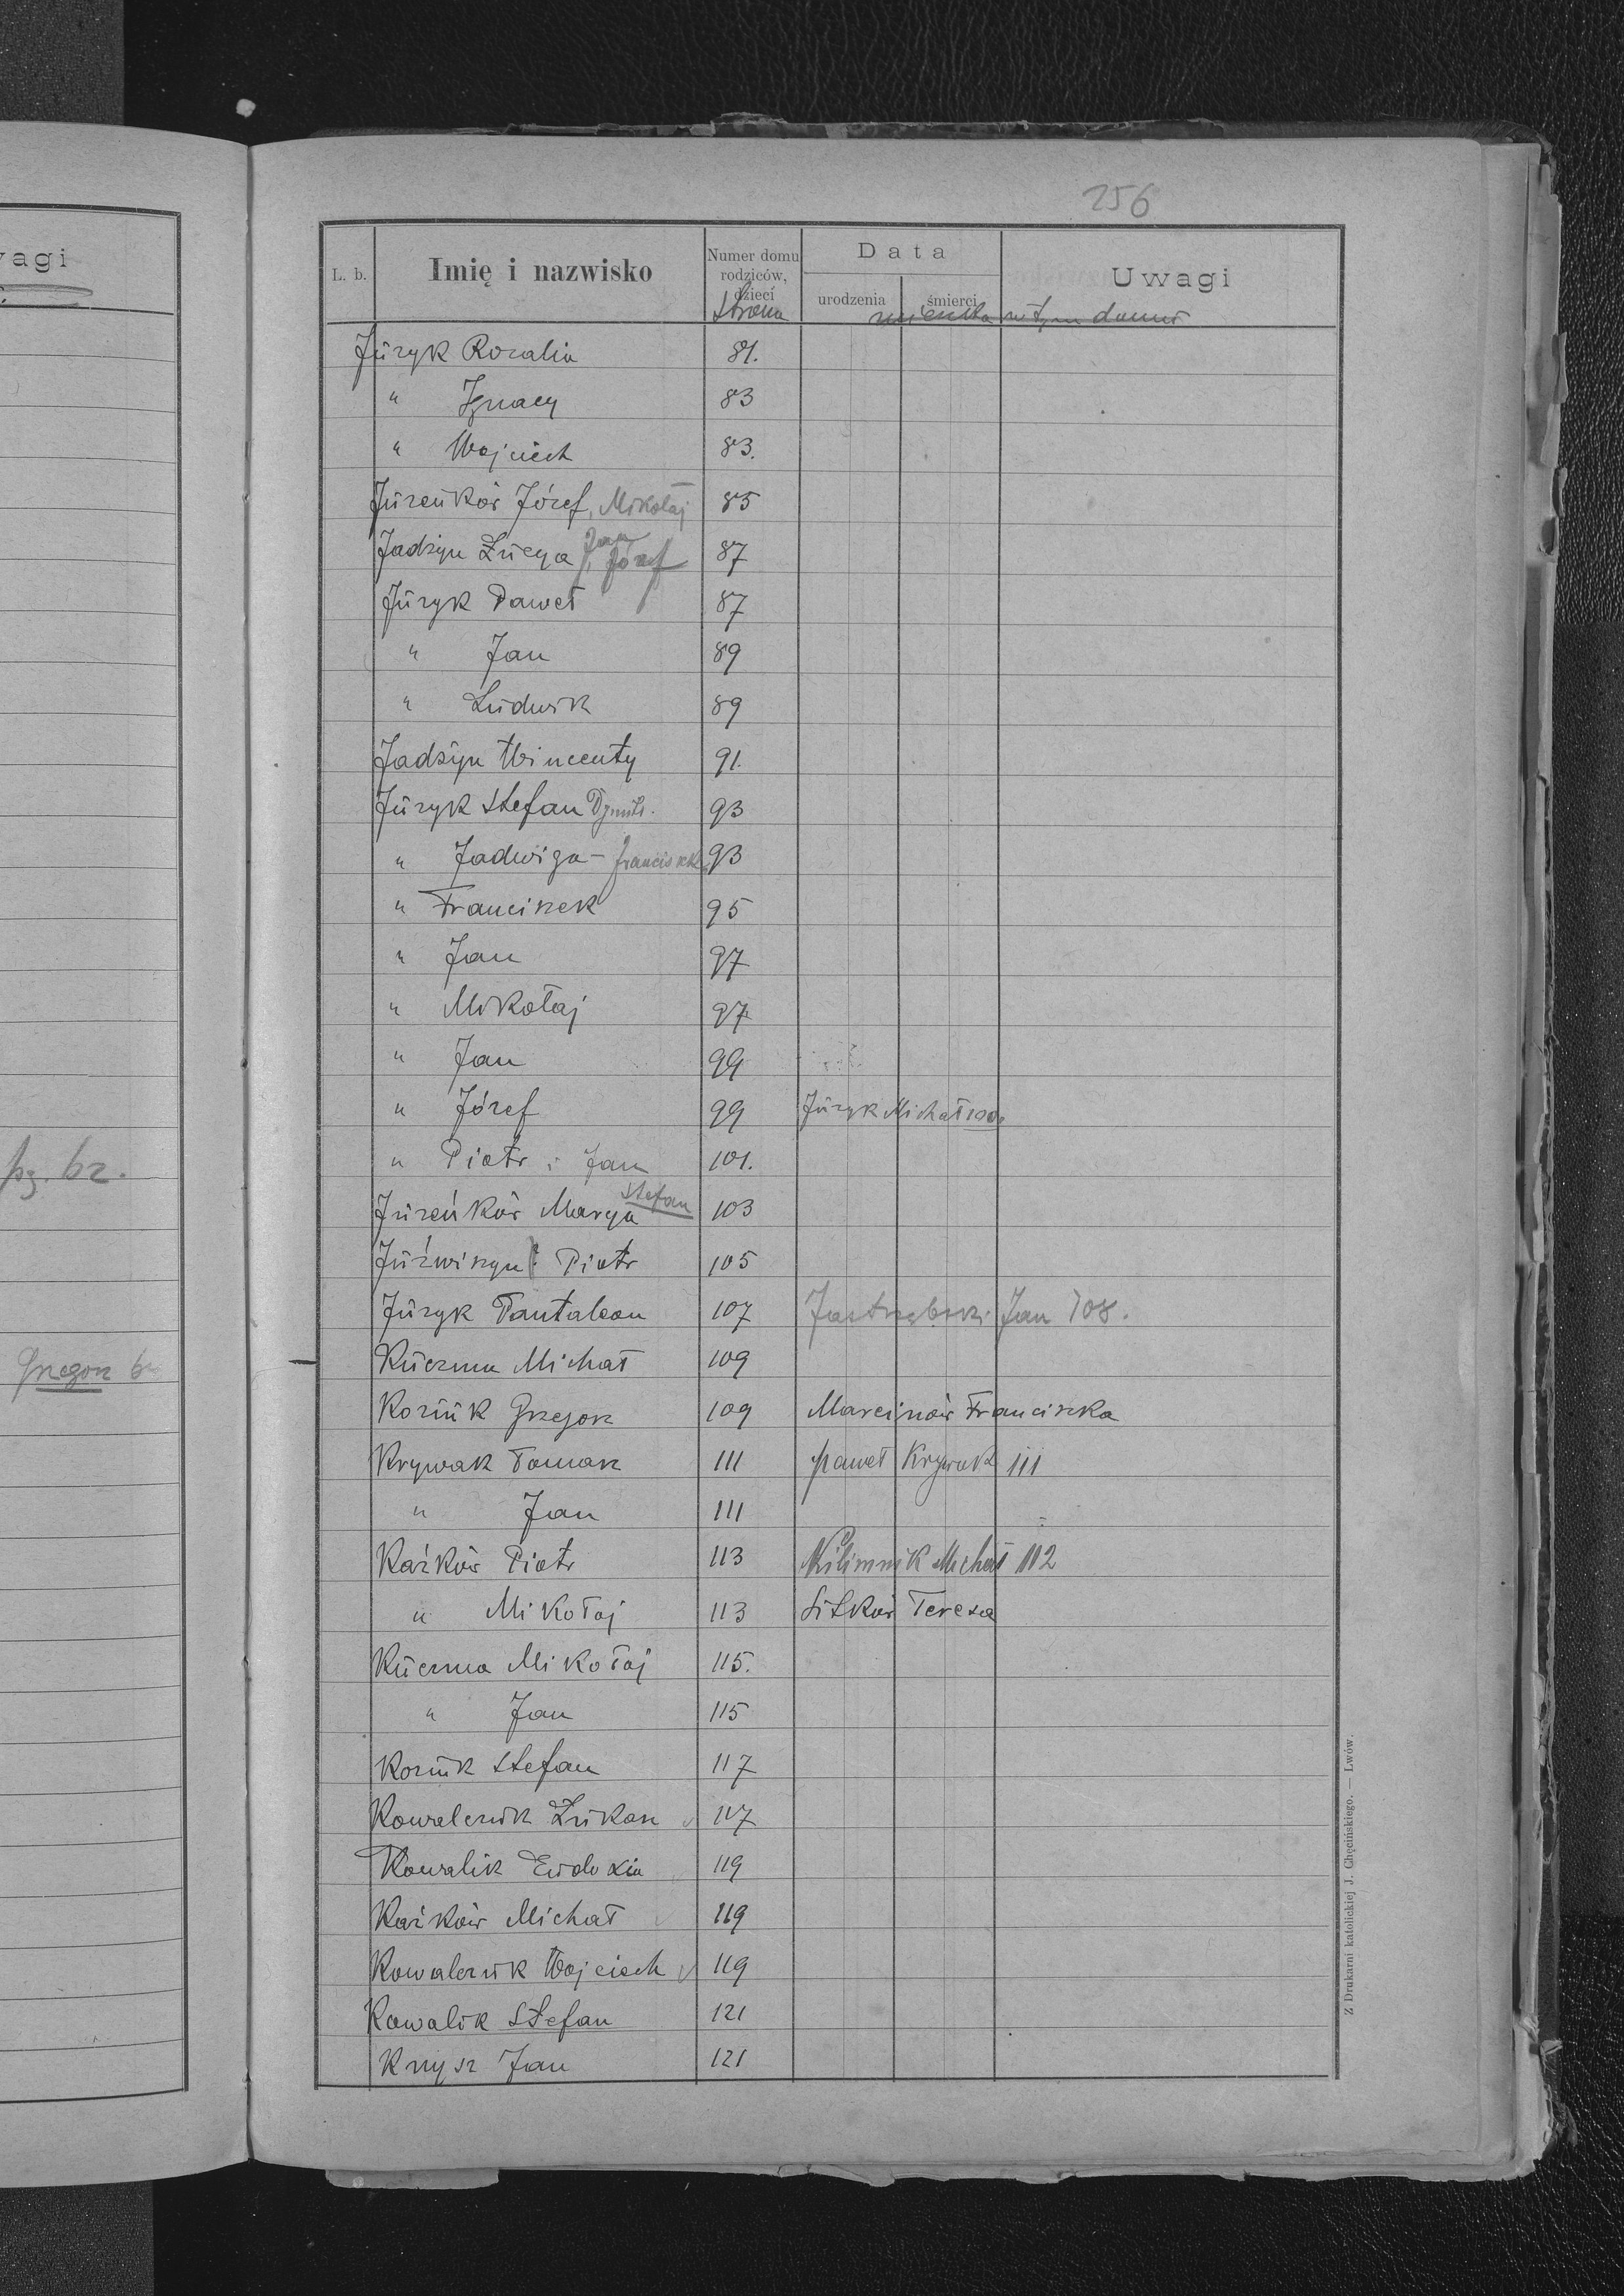 vagi
pg. 62.
Grzegorz 6
256
L. b. Imię i nazwisko Numer domu rodziców, dzieci Data urodzenia śmierci Uwagi
Strona mieszka w tym domu
Jüryk Rozalia 81.
" Ignacy 83
" Wojciech 83.
Jüreńków Józef, Mikołaj 85
Jan
Jadżyn Łucya, Józef 87
Jüryk Paweł 87
" Jan 89
" Ludwik 89
Jadżyn Wincenty 91.
Jüryk Stefan Dymitr. 93
" Jadwiga - Franciszek 93
" Franciszek 95
" Jan 97
" Mikołaj 97
" Jan 99
" Józef 99 Jüryk Michał 100.
" Piotr i Jan 101.
Stefan
Jüreńków Marya 103
Piotr 105
Jüryk Pantaleon 107 Jastrzębski Jan 108.
Kuczma Michał 109
Koziuk Grzegorz 109 Marcinów Franciszka
Krywak Tomasz 111 Paweł Krywak 111
" Jan 111
Kaźków Piotr 113 Kilimnik Michał 112
" Mikołaj 113 Sitków Teresa
Kuczma Mikołaj 115.
" Jan 115
Koziuk Stefan 117
Kowalczuk Łukasz 117
Kowalik Eudoxia 119
Kaźków Michał 119
Kowalczuk Wojciech 119
Kowalik Stefan 121
Knysz Jan 121
Z Drukarni katolickiej J. Chęcińskiego. — Lwów.